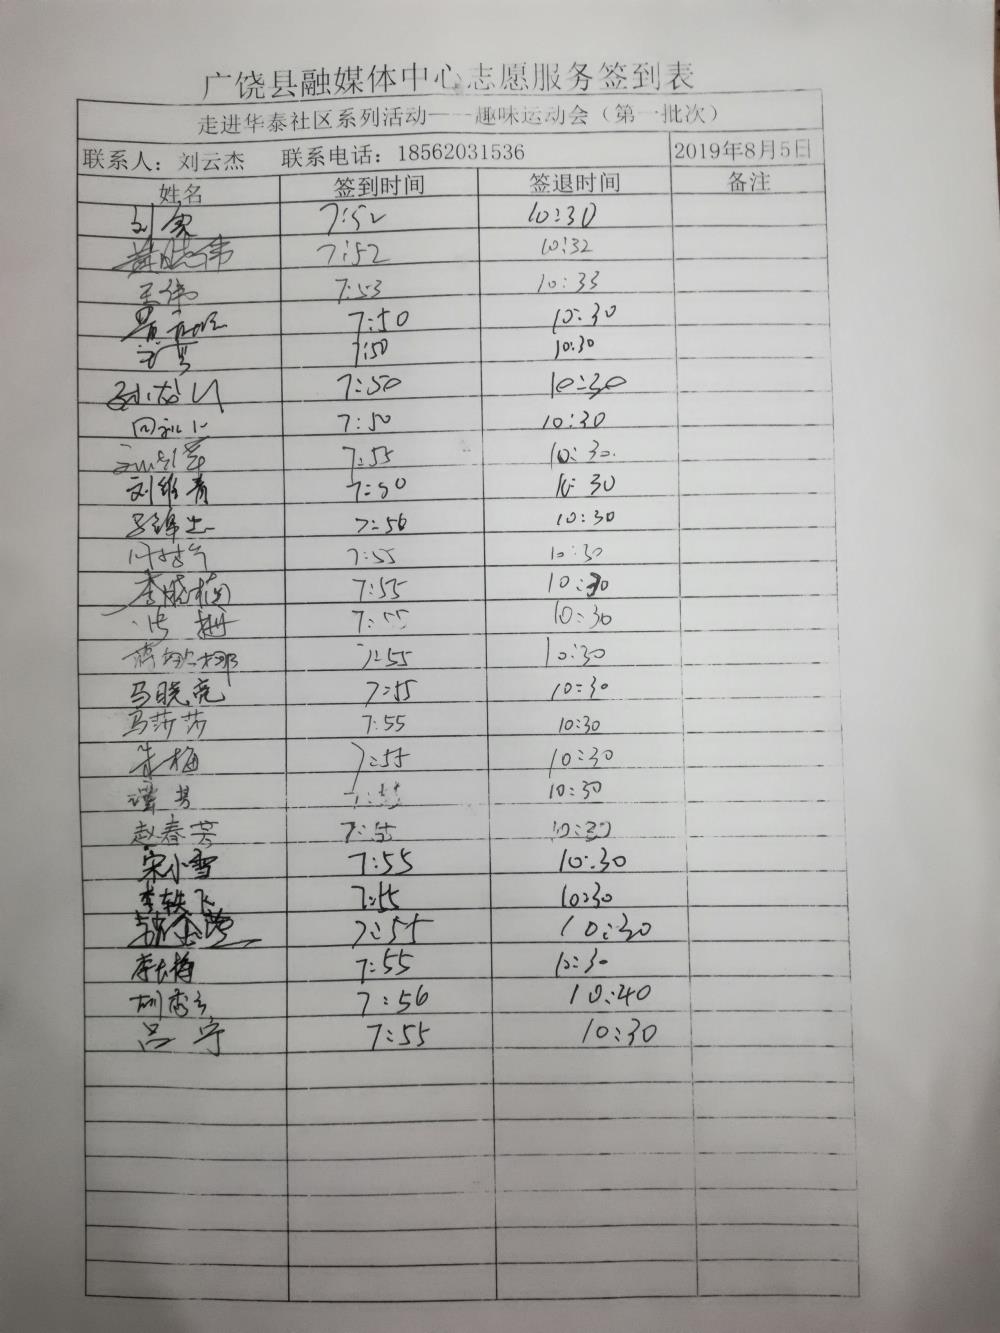 广饶县融媒体中心志愿服务签到表
走进华泰社区系列活动——趣味运动会（第一批次）
联系人：刘云杰 联系电话：18562031536 2019年8月5日
姓名 签到时间 签退时间 备注
7:52 10:30
7:52 10:32
王伟 7:53 10:33
7:50 10:30
7:50 10:30
7:50 10:30
7:50 10:30
7:55 10:30.
刘维青 7:50 10:30
7:56 10:30
7:55 10:30
李晓楠 7:55 10:30
7:55 10:30
娜 7:55 10:30
马晓亮 7:55 10:30
马莎莎 7:55 10:30
朱梅 7:55 10:30
7:55 10:30
赵春芳 7:55 10:30
宋小雪 7:55 10:30
李轶飞 7:55 10:30
7:55 10:30
7:55 10:30
7:56 10:40
吕宁 7:55 10:30